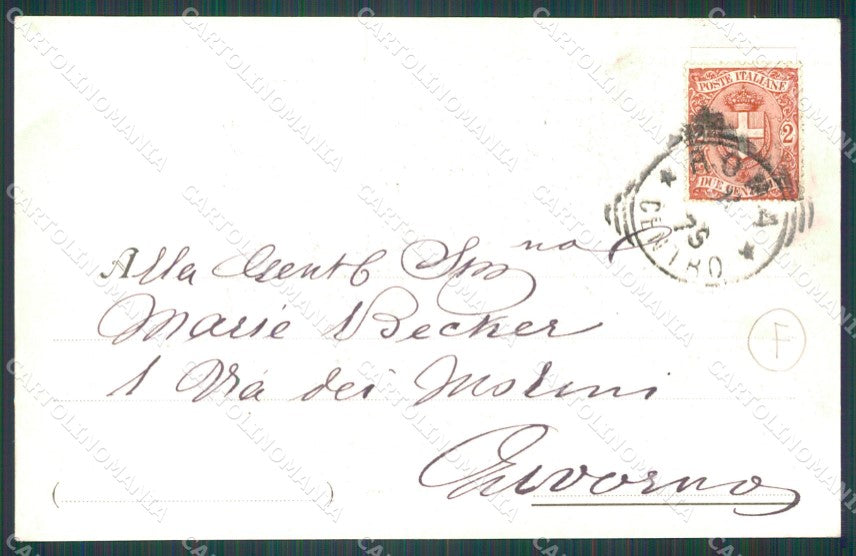 POSTE ITALIANE
2
ROMA
25
CENTRO
Alla Gent
Marie Becker
1 Via dei Molini
Livorno
F
CARTOLINOMANIA